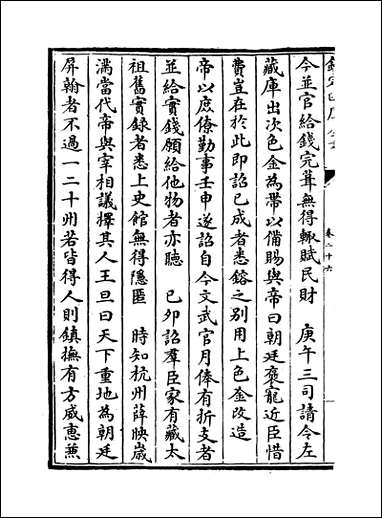 欽定四庫全書
卷二十六
今並官給錢完葺無得輙賦民財　庚午三司請令左
藏庫出次色金為帶以備賜與帝曰朝廷襃寵近臣惜
費豈在於此即詔已成者悉鎔之别用上色金改造
帝以庶僚勤事壬申遂詔自今文武官月俸有折支者
並給實錢願給他物者亦聽　已卯詔羣臣家有藏太
祖舊實録者悉上史館無得隱匿　時知杭州薛映歲
滿當代帝與宰相議擇其人王旦曰天下重地為朝廷
屏翰者不過一二十州若皆得人則鎮撫有方威惠蕪